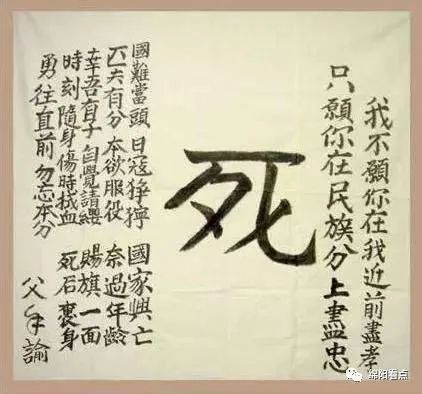 我不願你在我近前盡孝
只願你在民族分上盡忠
死
國難當頭 日寇猙獰 國家興亡
匹夫有分 本欲服役 奈過年齡
幸吾有子 自覺請纓 賜旗一面
時刻隨身 傷時拭血 死后裹身
勇往直前 勿忘本分
父手諭
绵阳看点